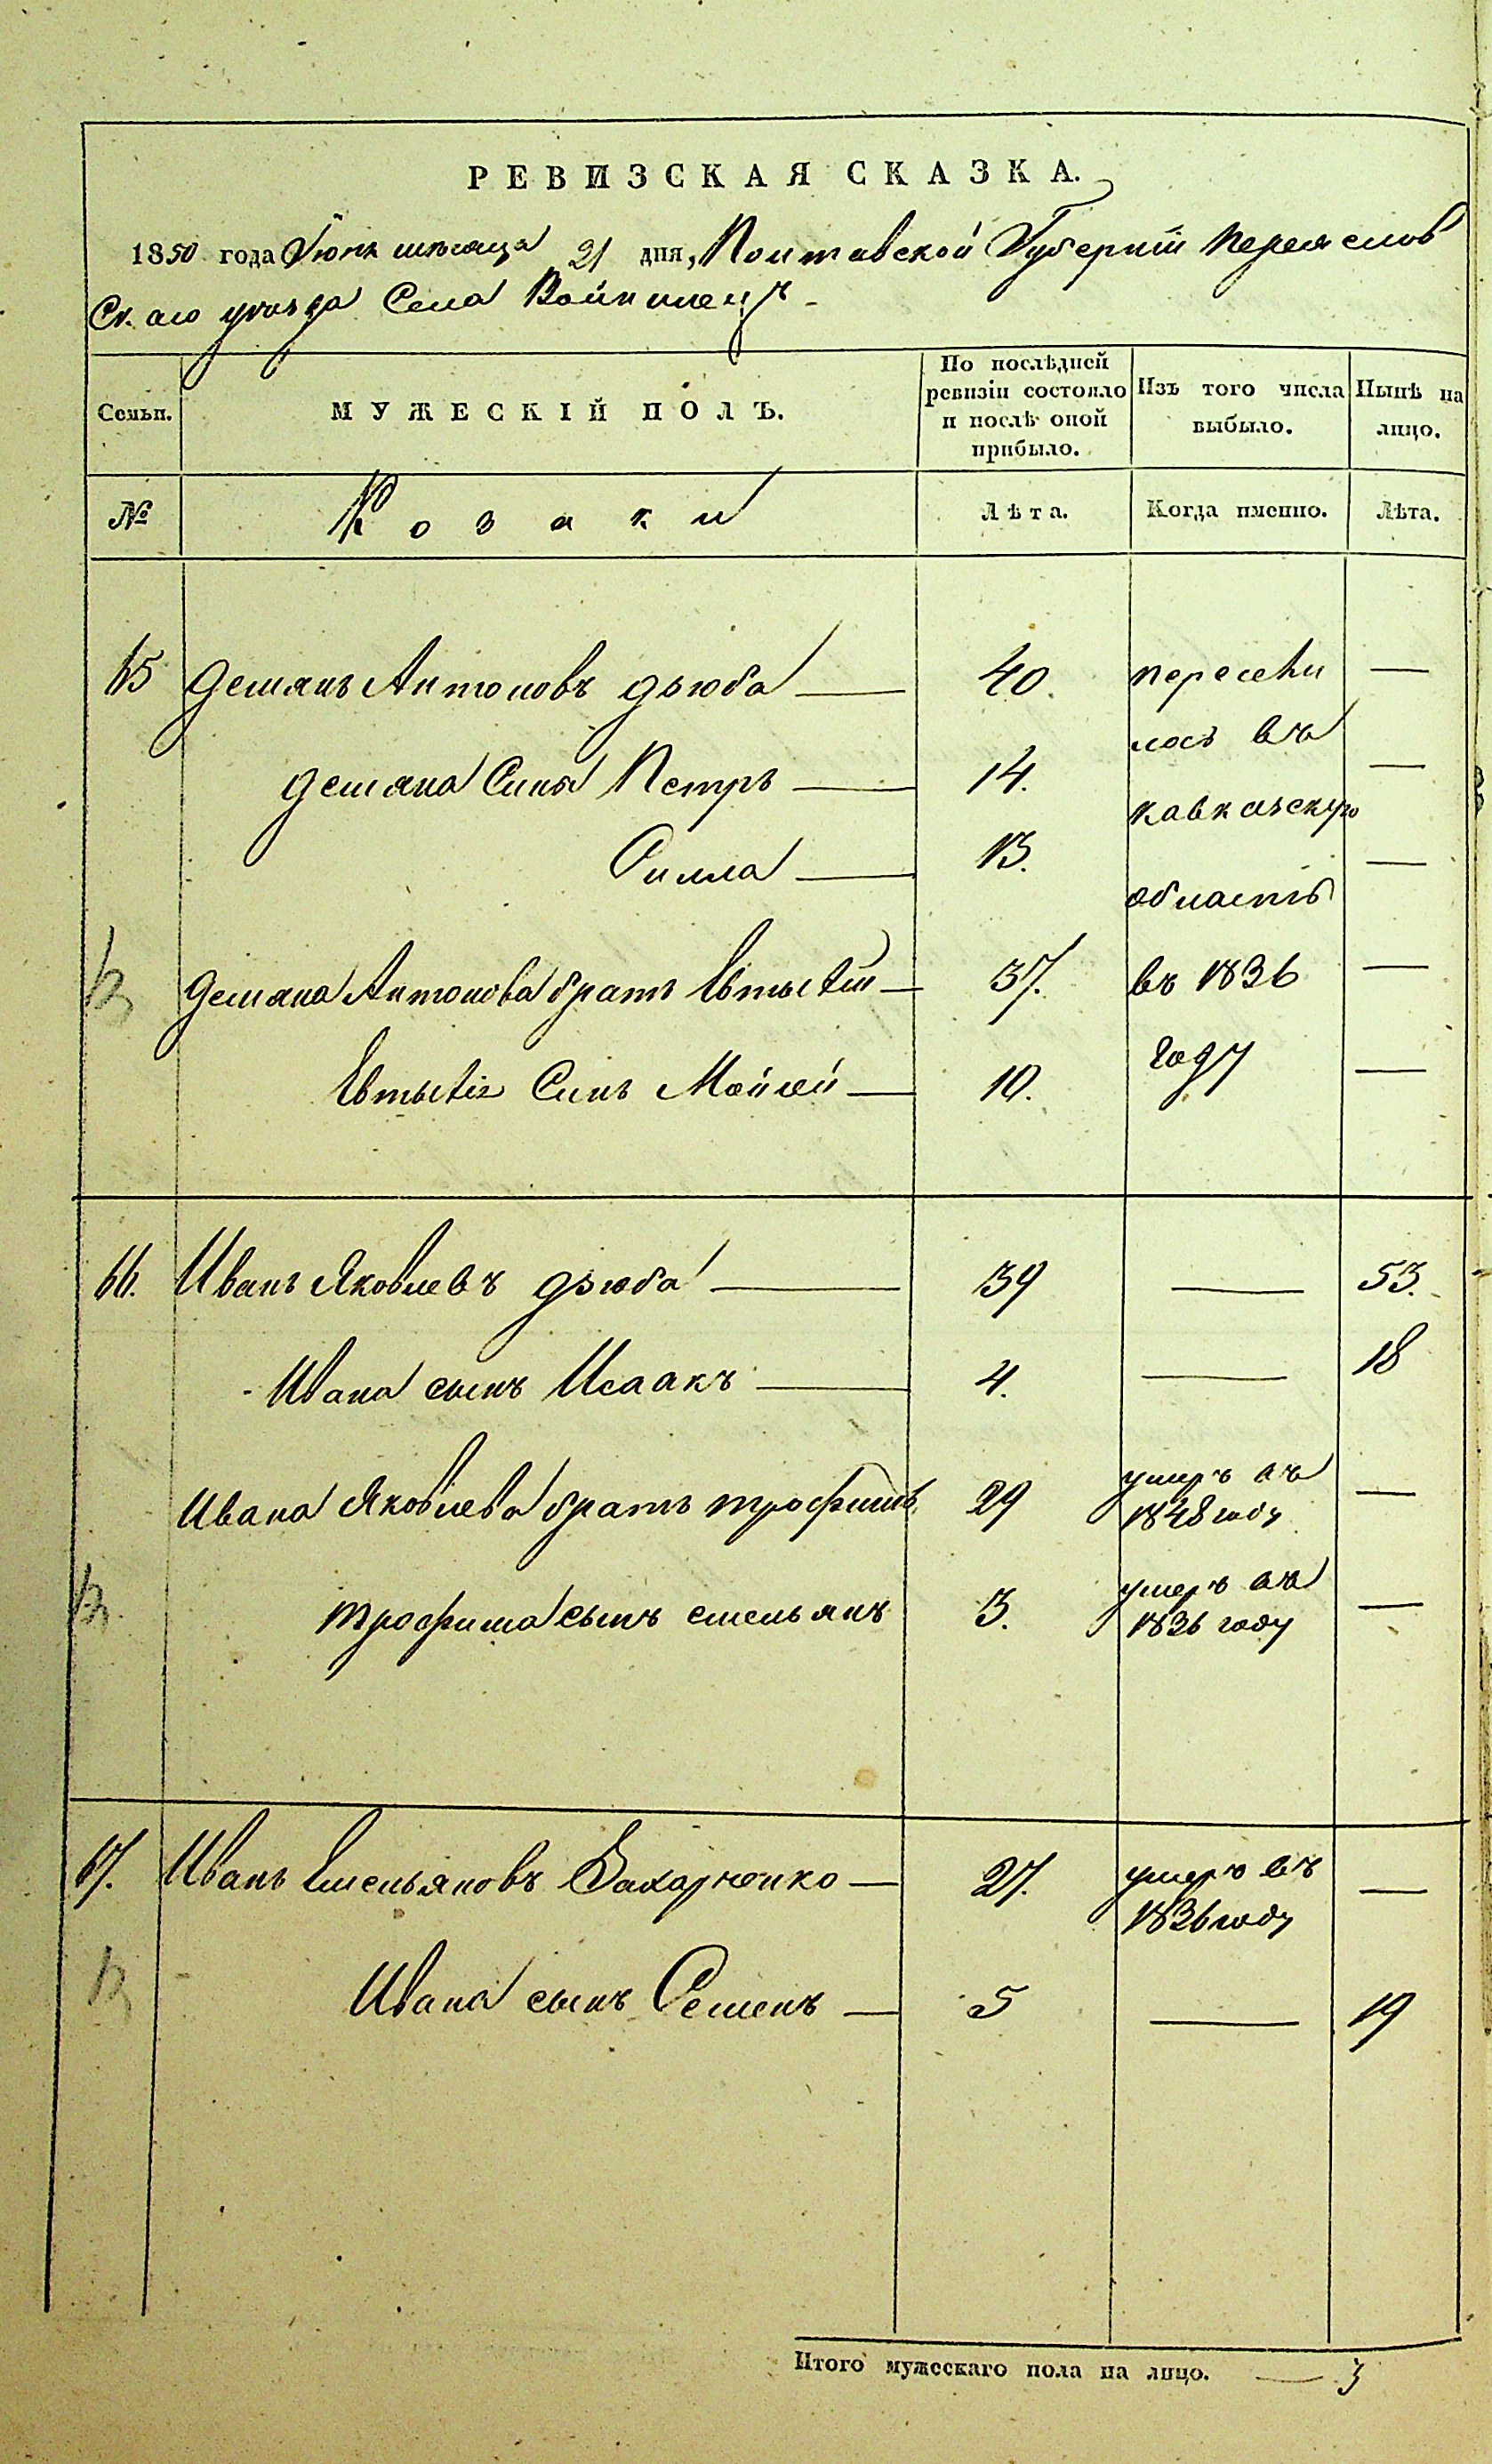 РЕВИЗСКАЯ СКАЗКА.
1850 года Июня мѣсяца 21 дня, Полтавской Губерніи Переяслов
Скаго уѣзда Села Войтовець
Семьи.
МУЖЕСКІЙ ПОЛЪ.
По послѣдней ревизіи состояло и послѣ оной прибыло.
Изъ того числа выбыло.
Нынѣ на лицо.
№ Козаки Лѣта. Когда именно. Лѣта.
65 Демянъ Антоновъ дзюба — 40. пересѣли —
Демяна Сины Петръ — 14. лось въ —
кавказскую
Силла — 13. —
область
Демяна Антонова братъ Евтыѣй — 37. въ 1836 —
Евтыѣя Синъ Мойсей — 10. году —
66. Иванъ Яковлевъ дзюба — 39 — 53.
Ивана сынъ Исаакъ — 4. — 18
Ивана Яковлева братъ трофимъ 29 умеръ въ 1848 году —
трофима сынъ емельянъ 3. умеръ въ 1836 году —
67. Иванъ Емельяновъ Захарченко — 27. умеръ въ 1836 году —
Ивана сынъ Семенъ — 5 — 19
Итого мужескаго пола на лицо. — 3